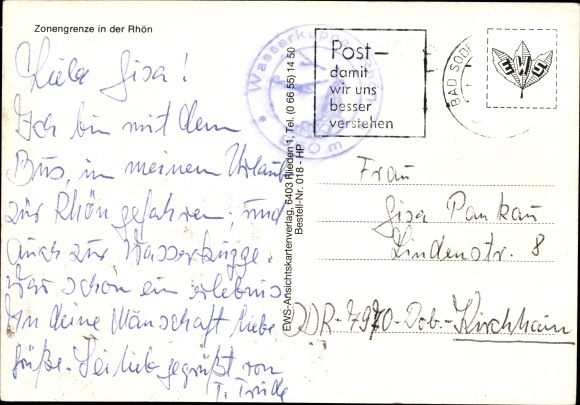 Zonengrenze in der Rhön
Liebe Gisa!
Ich bin mit dem
Bus, in meinem Urlaub
zur Rhön gefahren, und
auch zur Wasserkugge.
War schön ein erlebnis
An deine Manschaft liebe
grüße. Sei lieb gegrüßt von
T. Trude
Wasserkuppe
950 m
EWS-Ansichtskartenverlag, 6403 Flieden 1, Tel. (0 66 55) 14 50
Bestell-Nr. 018 - HP
Post-
damit
wir uns
besser
verstehen
BAD SOD
EWU
Frau
Gisa Pankau
Lindenstr. 8
DDR-7970-Dob-Kirchhain